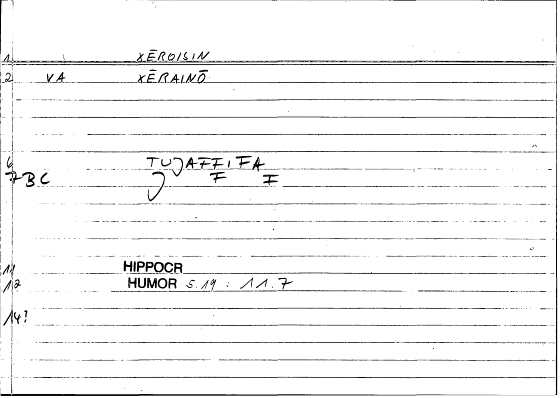 1 XĒROISIN
2 VA XĒRAINŌ
6
7BC
11 HIPPOCR
12 HUMOR 5.19 : 11.7
14?